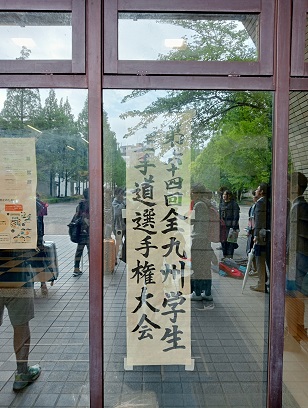 第六十四回全九州学生
空手道選手権大会